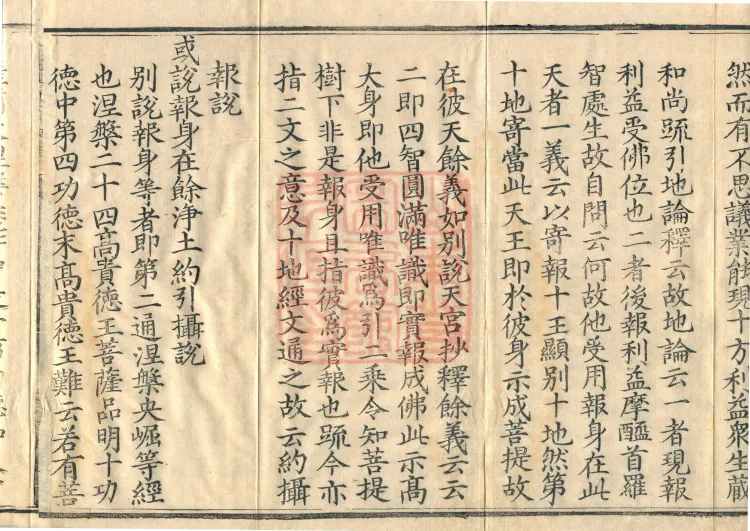 然而有不思議業能現十方利益衆生蔵
和尚䟽引地論釋云故地論云一者現報
利益受佛位也二者後報利益摩醯首羅
智處生故自問云何故他受用報身在此
天者一義云以寄報十王顯別十地然第
十地寄當此天王即於彼身示成菩提故
在彼天餘義如別說天宮抄釋餘義云云
二即四智圓滿唯識即實報成佛此示髙
大身即他受用唯識爲引二乗令知菩提
樹下非是報身且指彼爲實報也䟽今亦
指二文之意及十地經文通之故云約攝
報說
或說報身在餘淨土約引攝說
別說報身等者即第二通涅槃央崛等經
也涅槃二十四髙貴德王菩薩品明十功
德中第四功德末髙貴德王難云若有菩